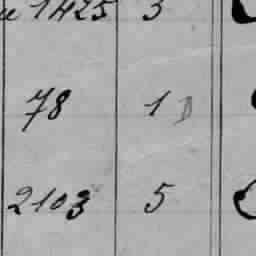 1425 3
78 1
2103 5